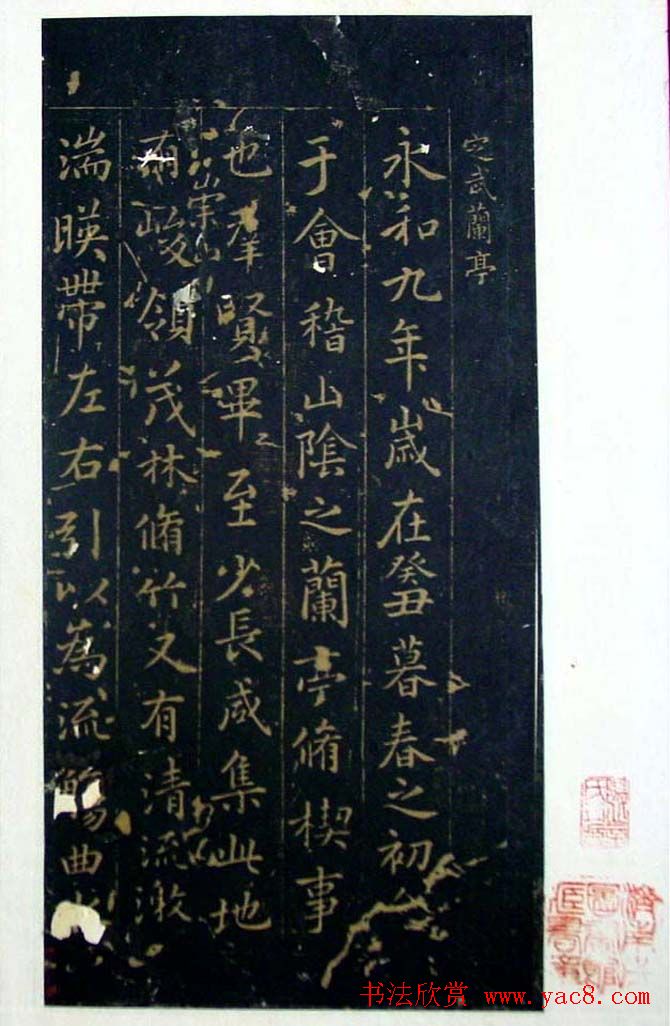 定武蘭亭
永和九年歲在癸丑暮春之初會
于會稽山陰之蘭亭脩稧事
也羣賢畢至少長咸集此地
有峻領茂林脩竹又有清流激
湍暎帶左右引以為流觴曲水
崇山
书法欣赏 www.yac8.com